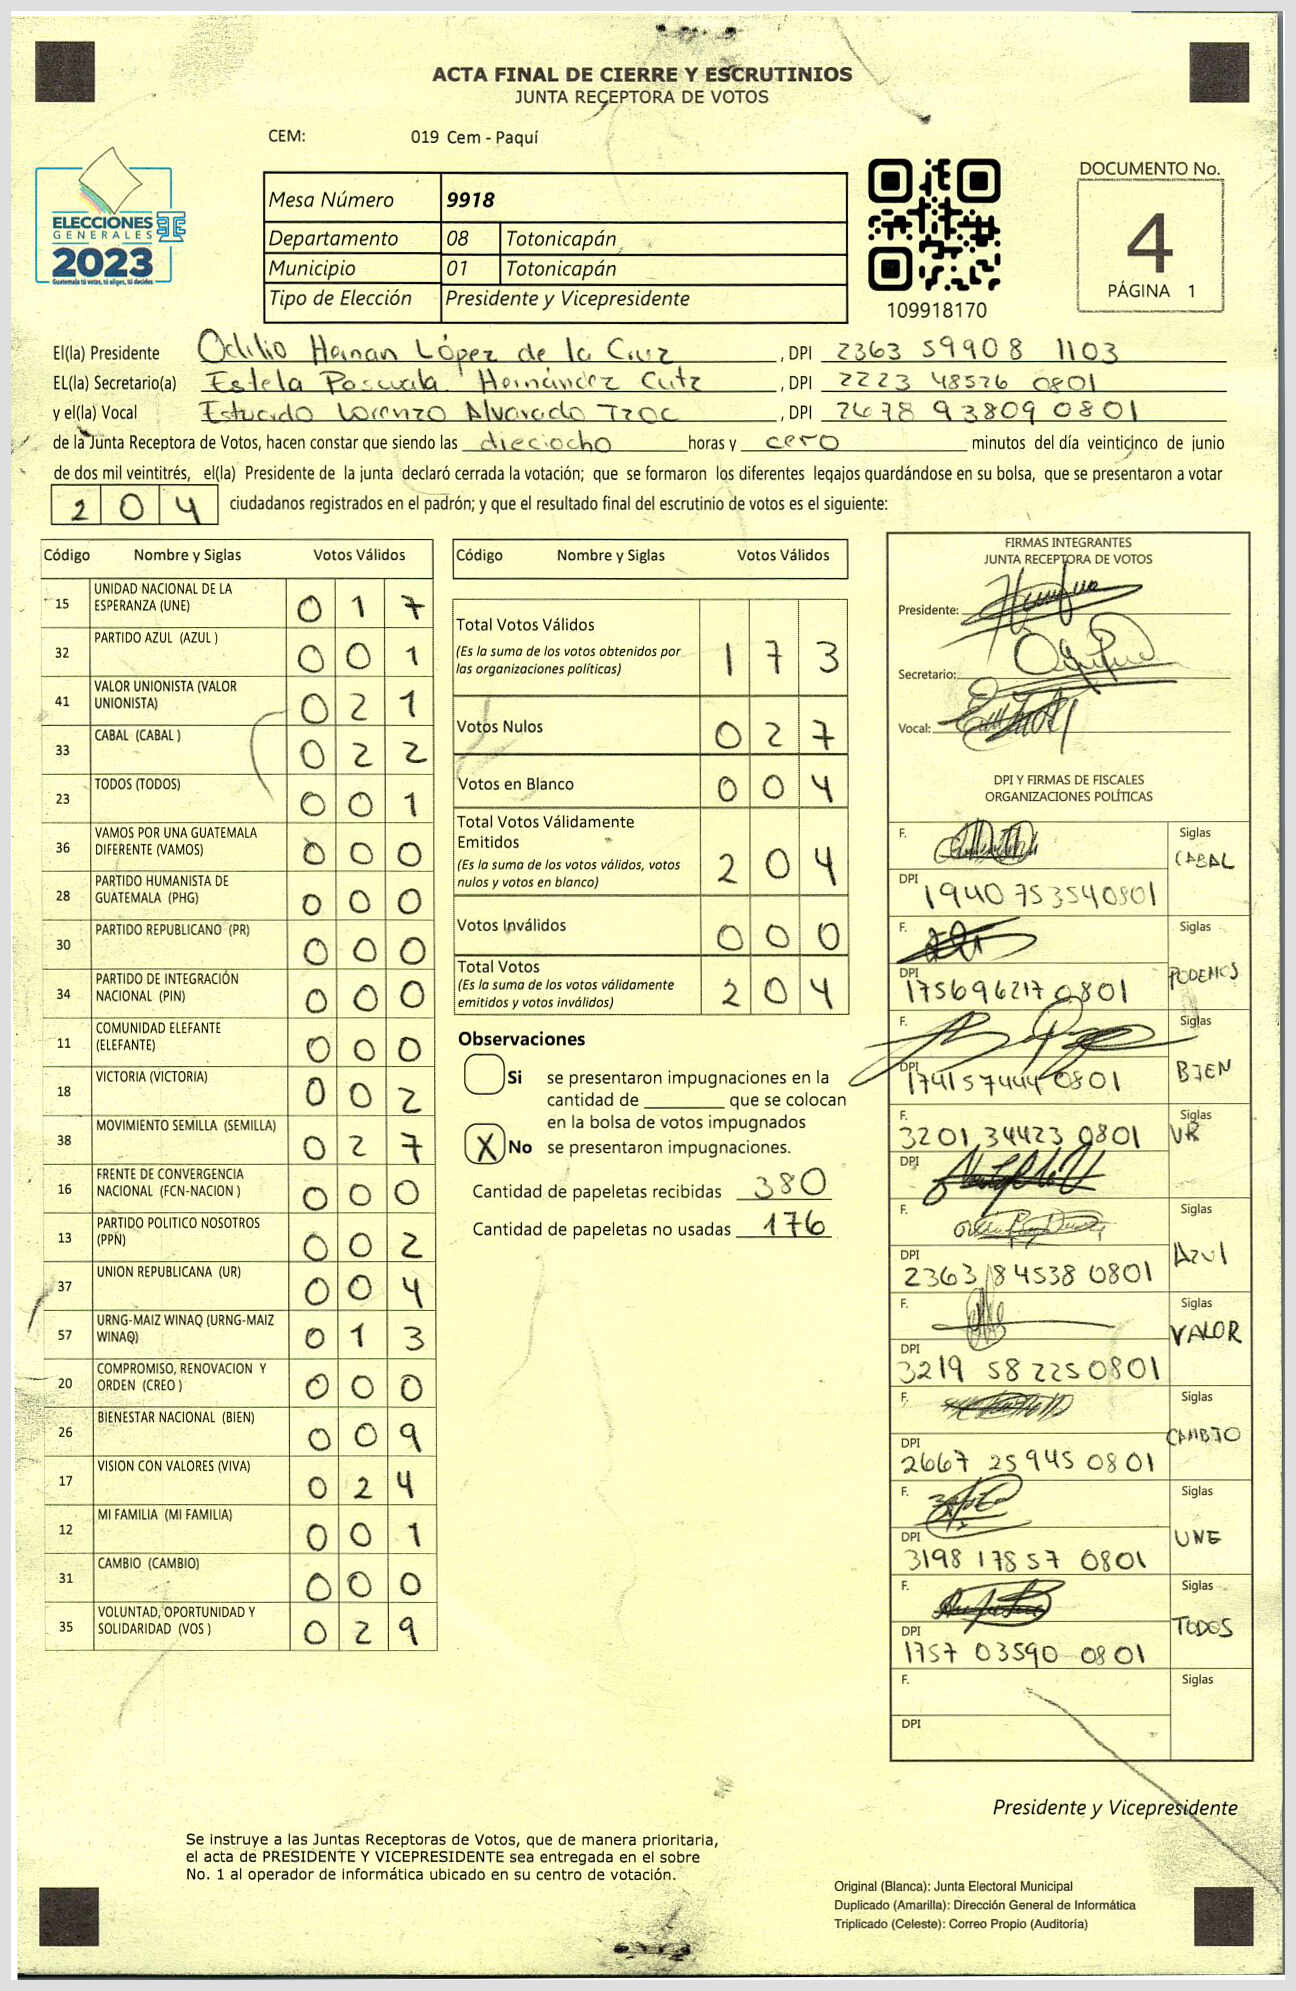 ACTA FINAL DE CIERRE Y ESCRUTINIOS
JUNTA RECEPTORA DE VOTOS
CEM: 019 Cem - Paquí
ELECCIONES
GENERALES
2023
Guatemala tú votas, tú eliges, tú decides
Mesa Número 9918
Departamento 08 Totonicapán
Municipio 01 Totonicapán
Tipo de Elección Presidente y Vicepresidente
109918170
DOCUMENTO No.
4
PÁGINA 1
El(la) Presidente Odilio Hernan López de la Cruz , DPI 2363 59908 1103
EL(la) Secretario(a) Estela Pascuala Hernández Cutz , DPI 2223 48526 0801
y el(la) Vocal Estuardo Lorenzo Alvarado Tzoc , DPI 2678 93809 0801
de la Junta Receptora de Votos, hacen constar que siendo las dieciocho horas y cero minutos del día veinticinco de junio
de dos mil veintitrés, el(la) Presidente de la junta declaró cerrada la votación; que se formaron los diferentes legajos guardándose en su bolsa, que se presentaron a votar
204 ciudadanos registrados en el padrón; y que el resultado final del escrutinio de votos es el siguiente:
Código Nombre y Siglas Votos Válidos
15 UNIDAD NACIONAL DE LA ESPERANZA (UNE) 017
32 PARTIDO AZUL (AZUL ) 001
41 VALOR UNIONISTA (VALOR UNIONISTA) 021
33 CABAL (CABAL ) 022
23 TODOS (TODOS) 001
36 VAMOS POR UNA GUATEMALA DIFERENTE (VAMOS) 000
28 PARTIDO HUMANISTA DE GUATEMALA (PHG) 000
30 PARTIDO REPUBLICANO (PR) 000
34 PARTIDO DE INTEGRACIÓN NACIONAL (PIN) 000
11 COMUNIDAD ELEFANTE (ELEFANTE) 000
18 VICTORIA (VICTORIA) 002
38 MOVIMIENTO SEMILLA (SEMILLA) 027
16 FRENTE DE CONVERGENCIA NACIONAL (FCN-NACION ) 000
13 PARTIDO POLITICO NOSOTROS (PPN) 002
37 UNION REPUBLICANA (UR) 004
57 URNG-MAIZ WINAQ (URNG-MAIZ WINAQ) 013
20 COMPROMISO, RENOVACION Y ORDEN (CREO ) 000
26 BIENESTAR NACIONAL (BIEN) 009
17 VISION CON VALORES (VIVA) 024
12 MI FAMILIA (MI FAMILIA) 001
31 CAMBIO (CAMBIO) 000
35 VOLUNTAD, OPORTUNIDAD Y SOLIDARIDAD (VOS ) 029
Código Nombre y Siglas Votos Válidos
Total Votos Válidos 173
(Es la suma de los votos obtenidos por
las organizaciones políticas)
Votos Nulos 027
Votos en Blanco 004
Total Votos Válidamente
Emitidos 204
(Es la suma de los votos válidos, votos
nulos y votos en blanco)
Votos Inválidos 000
Total Votos 204
(Es la suma de los votos válidamente
emitidos y votos inválidos)
Observaciones
Si se presentaron impugnaciones en la
cantidad de ________ que se colocan
en la bolsa de votos impugnados
X No se presentaron impugnaciones.
Cantidad de papeletas recibidas 380
Cantidad de papeletas no usadas 176
FIRMAS INTEGRANTES
JUNTA RECEPTORA DE VOTOS
Presidente:
Secretario:
Vocal:
DPI Y FIRMAS DE FISCALES
ORGANIZACIONES POLÍTICAS
F. Siglas CABAL
DPI 1940 75354 0801
F. Siglas PODEMOS
DPI 1756 96217 0801
F. Siglas BIEN
DPI 1741 57444 0801
F. Siglas UR
3201 34423 0801
DPI
F. Siglas Azul
DPI 2363 84538 0801
F. Siglas VALOR
DPI 3219 58225 0801
F. Siglas CAMBIO
DPI 2667 25945 0801
F. Siglas UNE
DPI 3198 17857 0801
F. Siglas TODOS
DPI 1757 03590 0801
F. Siglas
DPI
Presidente y Vicepresidente
Se instruye a las Juntas Receptoras de Votos, que de manera prioritaria,
el acta de PRESIDENTE Y VICEPRESIDENTE sea entregada en el sobre
No. 1 al operador de informática ubicado en su centro de votación.
Original (Blanca): Junta Electoral Municipal
Duplicado (Amarilla): Dirección General de Informática
Triplicado (Celeste): Correo Propio (Auditoría)